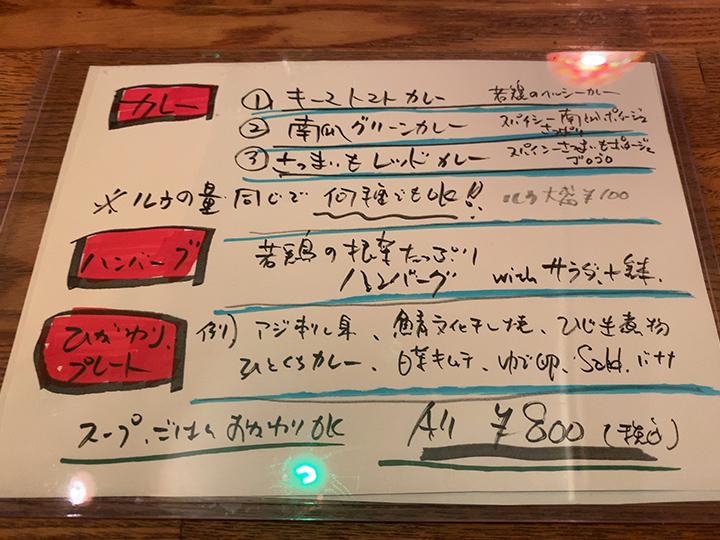 カレー
① キーマトマトカレー 若鶏のヘルシーカレー
② 南瓜グリーンカレー スパイシー南瓜ポタージュ
③ さつまいもレッドカレー スパイシーさつまいもポタージュ ゴロゴロ
※ルウの量同じで何種でもOK!! ルウ大盛¥100
ハンバーグ
若鶏の根菜たっぷり
ハンバーグ with サラダ
ひがわり、
プレート
例) アジ刺し身、鯖文化干し焼、ひじき煮物
ひとくちカレー、白菜キムチ、ゆで卵、Salad、バナナ
スープ、ごはんおかわりOK All ¥800 (税込)